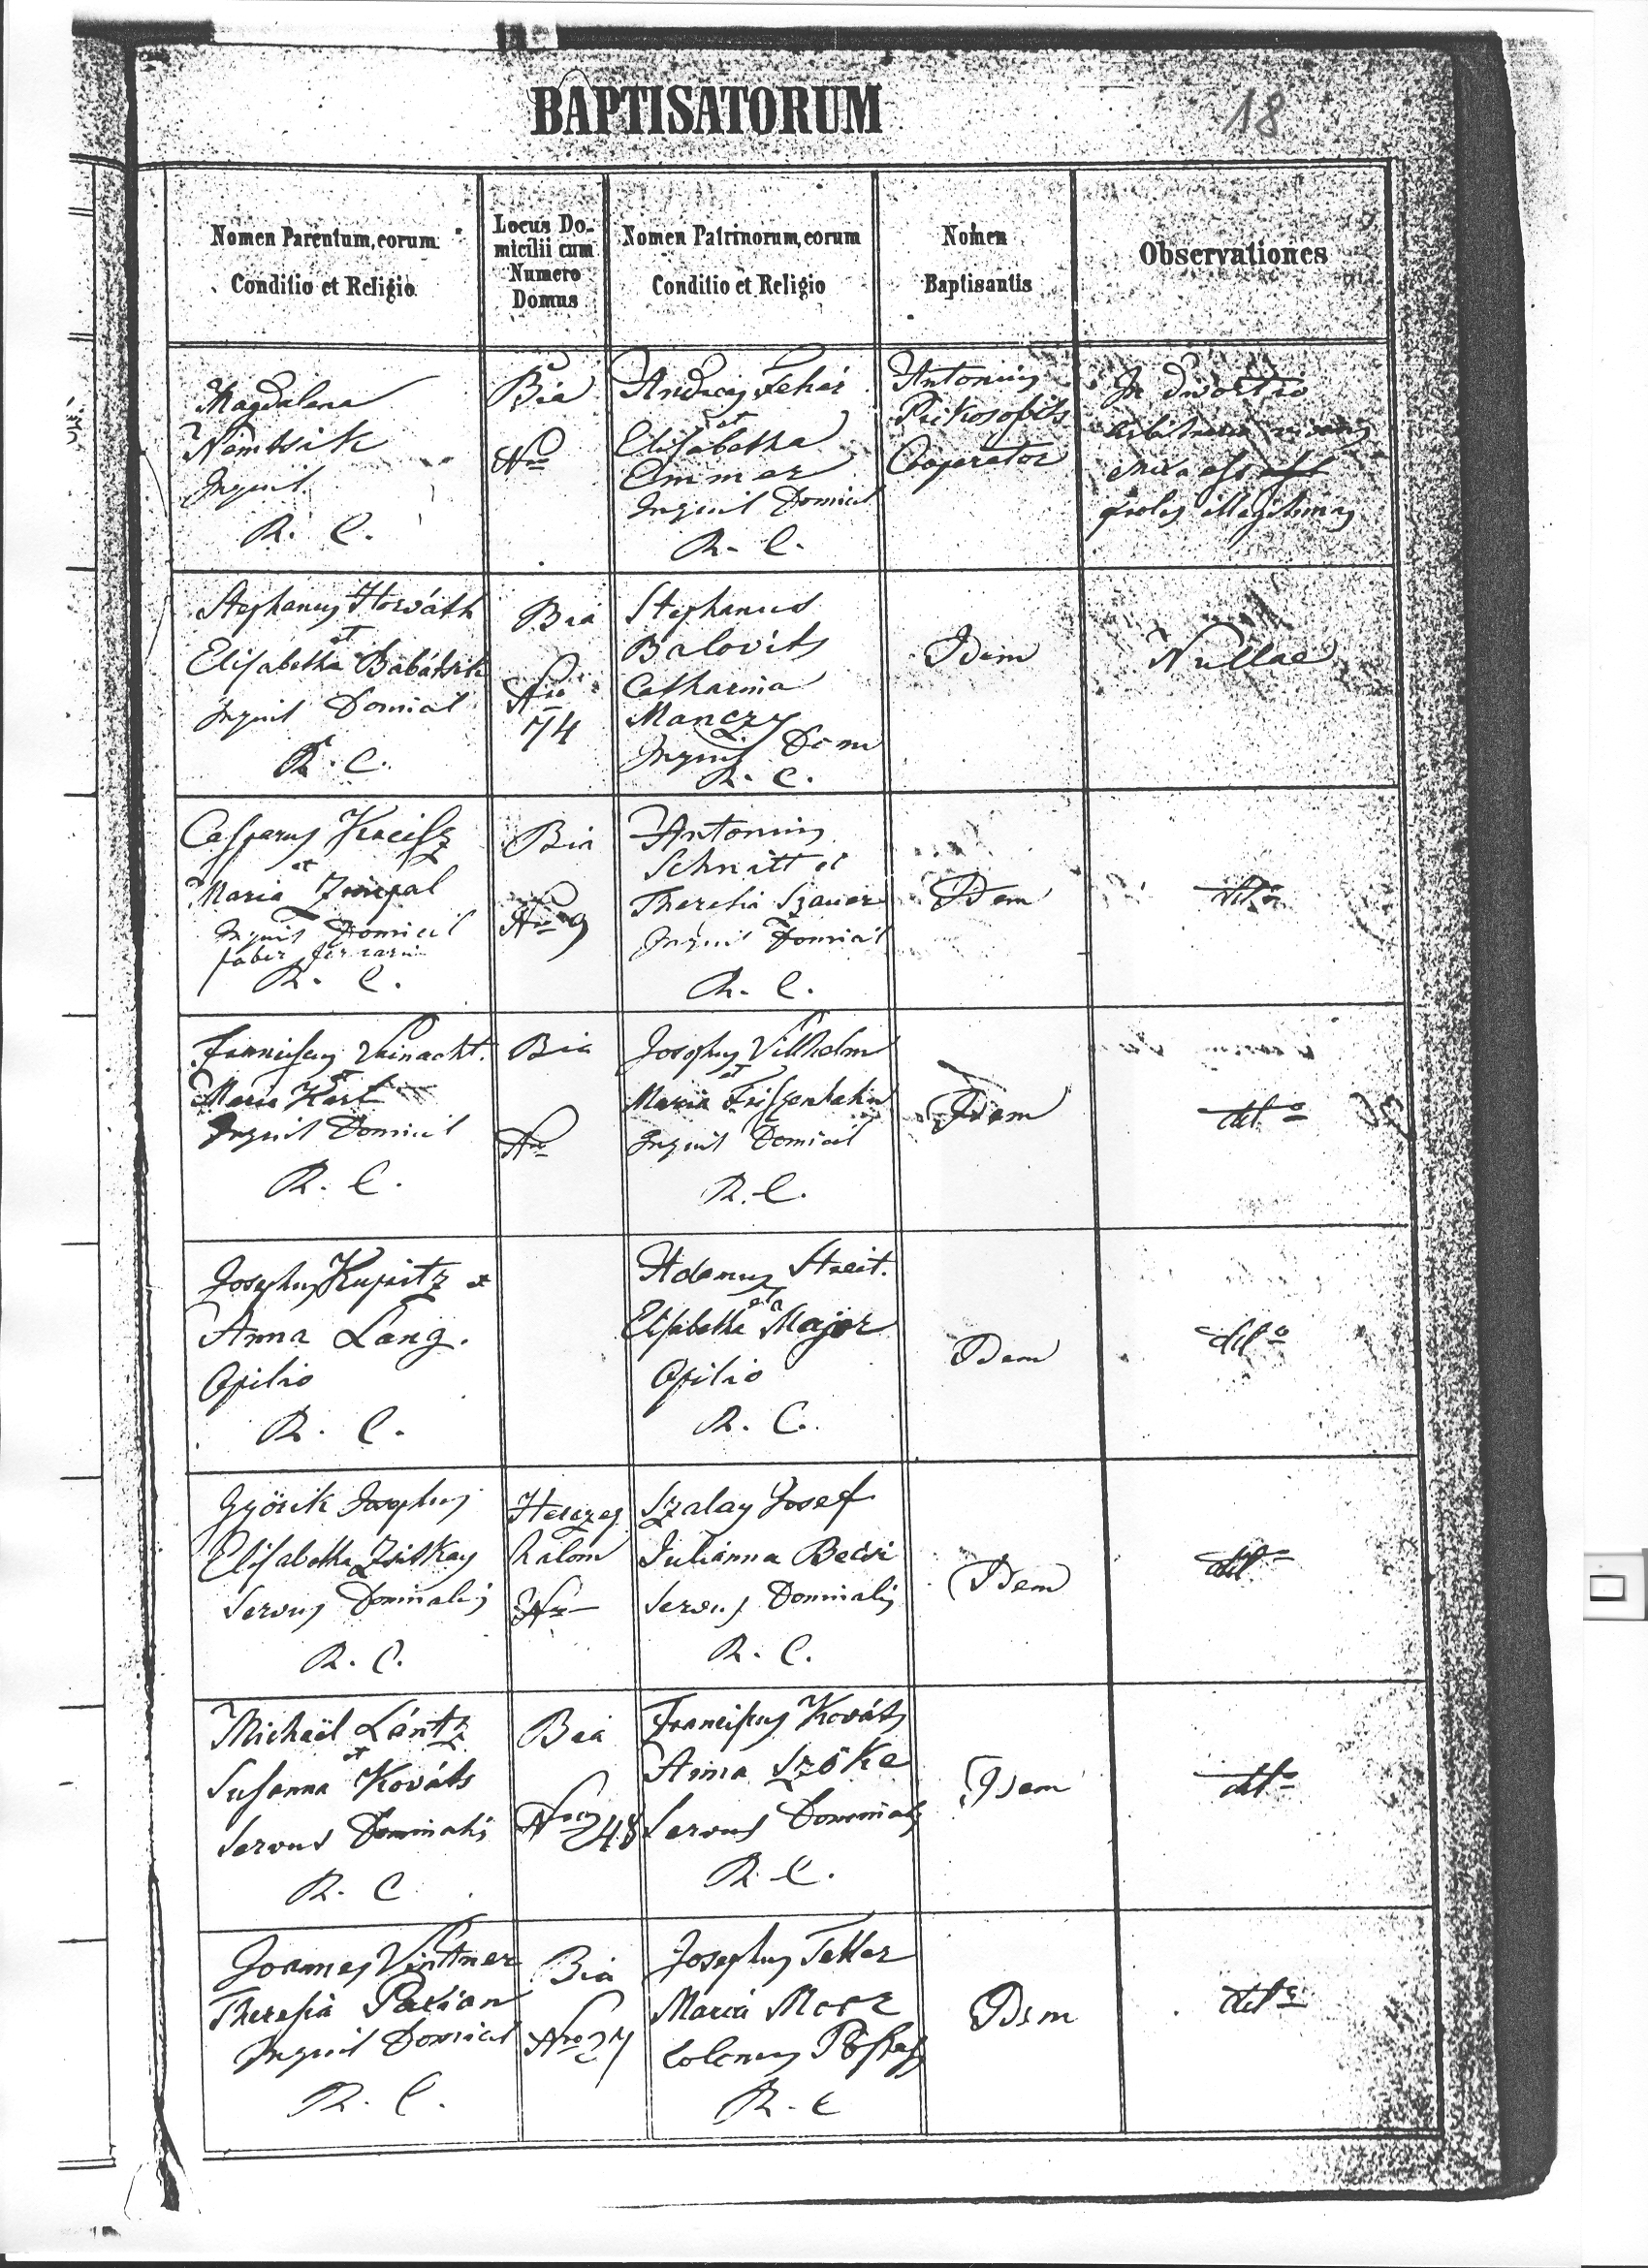 BAPTISATORUM
18
Nomen Parentum, eorum
Conditio et Religio
Locus Do-
micilii cum
Numero
Domus
Nomen Patrinorum, eorum
Conditio et Religio
Nomen
Baptisantis
Observationes
Magdalena
Nemtsik
Inquil.
R. C.
Bia
Nro
Andreas Fehér
et
Elisabetha
Emmer
Inquil Domicil
R. C.
Antonius
Cooperator
In divortio
proles illegitimas
Stephanus Horváth
et
Elisabetha Babátsik
Inquil Domicil
R. C.
Bia
Nro
74
Stephanus
Balovits
Catharina
Manczy
Inquil Dom
R. C.
Idem
Nullae
Casparus Kreisz
et
Maria
Inquil Domicil
faber ferrari
R. C.
Bia
Nro 9
Antonius
Schmitt et
Theresia Szauer
Inquil Domicil
R. C.
Idem
dto
Franciscus Veinacht.
et
Maria Kerl
Inquil Domicil
R. C.
Bia
Nro
Josephus Vilhelm
et
Maria
Inquil Domicil
R. C.
Idem
dto
Josephus Kupritz et
Anna Lang.
Opilio
R. C.
Adamus Streit.
et
Elisabetha Major
Opilio
R. C.
Idem
dto
Györik Josephus
Elisabetha Zsitkay
Servus Dominalis
R. C.
Herczeg
halom
Nro
Szalay Josef
Julianna Becsi
Servus Dominalis
R. C.
Idem
dto
Michaël Lántz
et
Susanna Kováts
Servus Dominalis
R. C
Bia
Nro 248
Franciscus Kováts
Anna Szöke
Servus Dominalis
R. C.
Idem
dto
Joannes Vinttner
Theresia Parian
Inquil Domicil
R. C.
Bia
Nro 27
Josephus Teller
Maria Morr
Colonus
R. C
Idem
dto